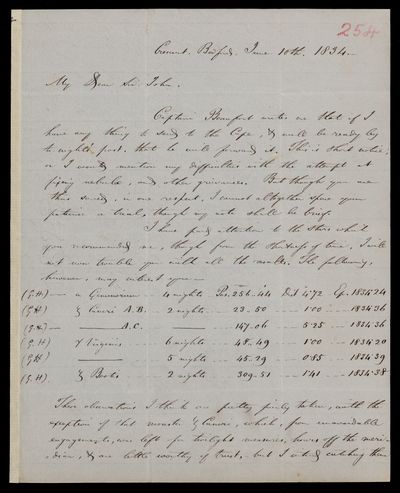 254
Crescent. Bedford. June 10th. 1834.—
My Dear Sir John.
Captain Beaufort writes me that if I
have any thing to send to the Cape, & will be ready by
to night's post, that he will forward it. This is short notice;
or I would mention my difficulties with the attempt at
fixing nebulæ, and other grievances. But though you are
thus saved, in one respect, I cannot altogether spare your
patience a trial, though my note shall be brief.
I have paid attention to the stars which
you recommended me, though from the shortness of time, I will
not now trouble you with all the results. The following,
however, may interest you —
(G.H) — α Geminorum — 4 nights Pos. 256.44 Dist 4.72 Ep. 1834.24
(G.H) ζ Cancri A.B. 2 nights 23.50 1.00 1834.36
(G.H) — A.C. 147.06 5.25 1834.36
(G.H) γ Virginis 6 nights 48.49 1.00 1834.20
(G.H) 5 nights 45.29 0.85 1834.39
(G.H) ξ Bootis 2 nights 309.51 1.41 1834.38
These observations I think are pretty fairly taken, with the
exception of that monster ζ Cancri, which, from unavoidable
engagements, was left for twilight measures, hours off the meri-
dian, & are little worthy of trust, but I intend catching them